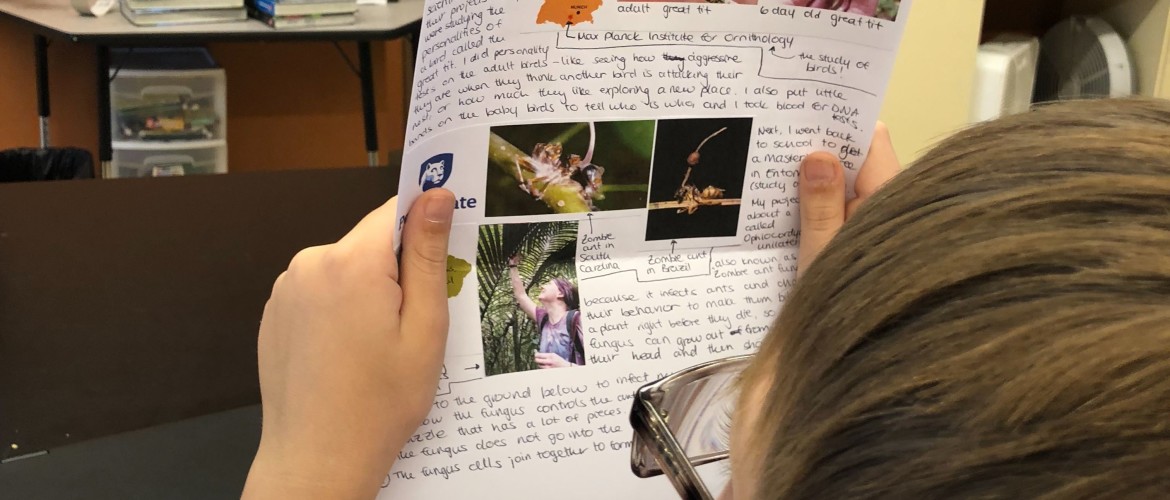 their projects
were studying the
personalities of
a bird called the
great tit. I did personality
tests on the adult birds - like seeing how aggressive
they are when they think another bird is attacking their
nest, or how much they like exploring a new place. I also put little
bands on the baby birds to tell who is who, and I took blood for DNA
tests.
MUNICH
adult great tit
6 day old great tit
Max Planck Institute for Ornithology
the study of
birds!
Next, I went back
to school to get
a Master
in Entom
(study o
My projec
about a
called
Ophiocordy
unilater
also known as
Zombie ant fun
ate
Zombie
ant in
South
Carolina
Zombie ant
in Brazil
because it infects ants and
their behavior to make them b
a plant right before they die, so
fungus can grow out of from
their head and then sho
to the ground below to infect
ow the fungus controls the
zzle that has a lot of pieces
he fungus does not go into the
The fungus cells join together to form